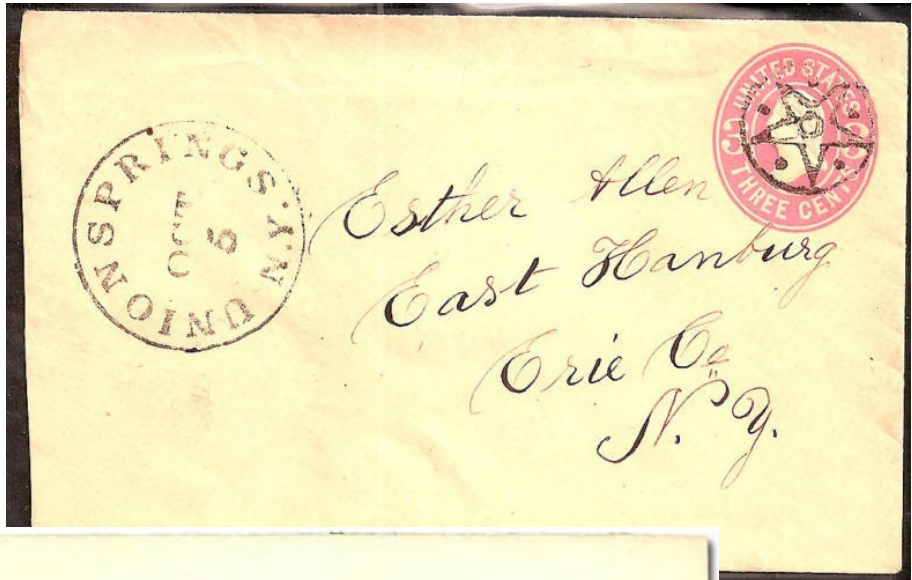 UNION SPRINGS. N.Y.
OCT
5
UNITED STATES
THREE CENTS
Esther Allen
East Hanburg
Erie Co
N. Y.